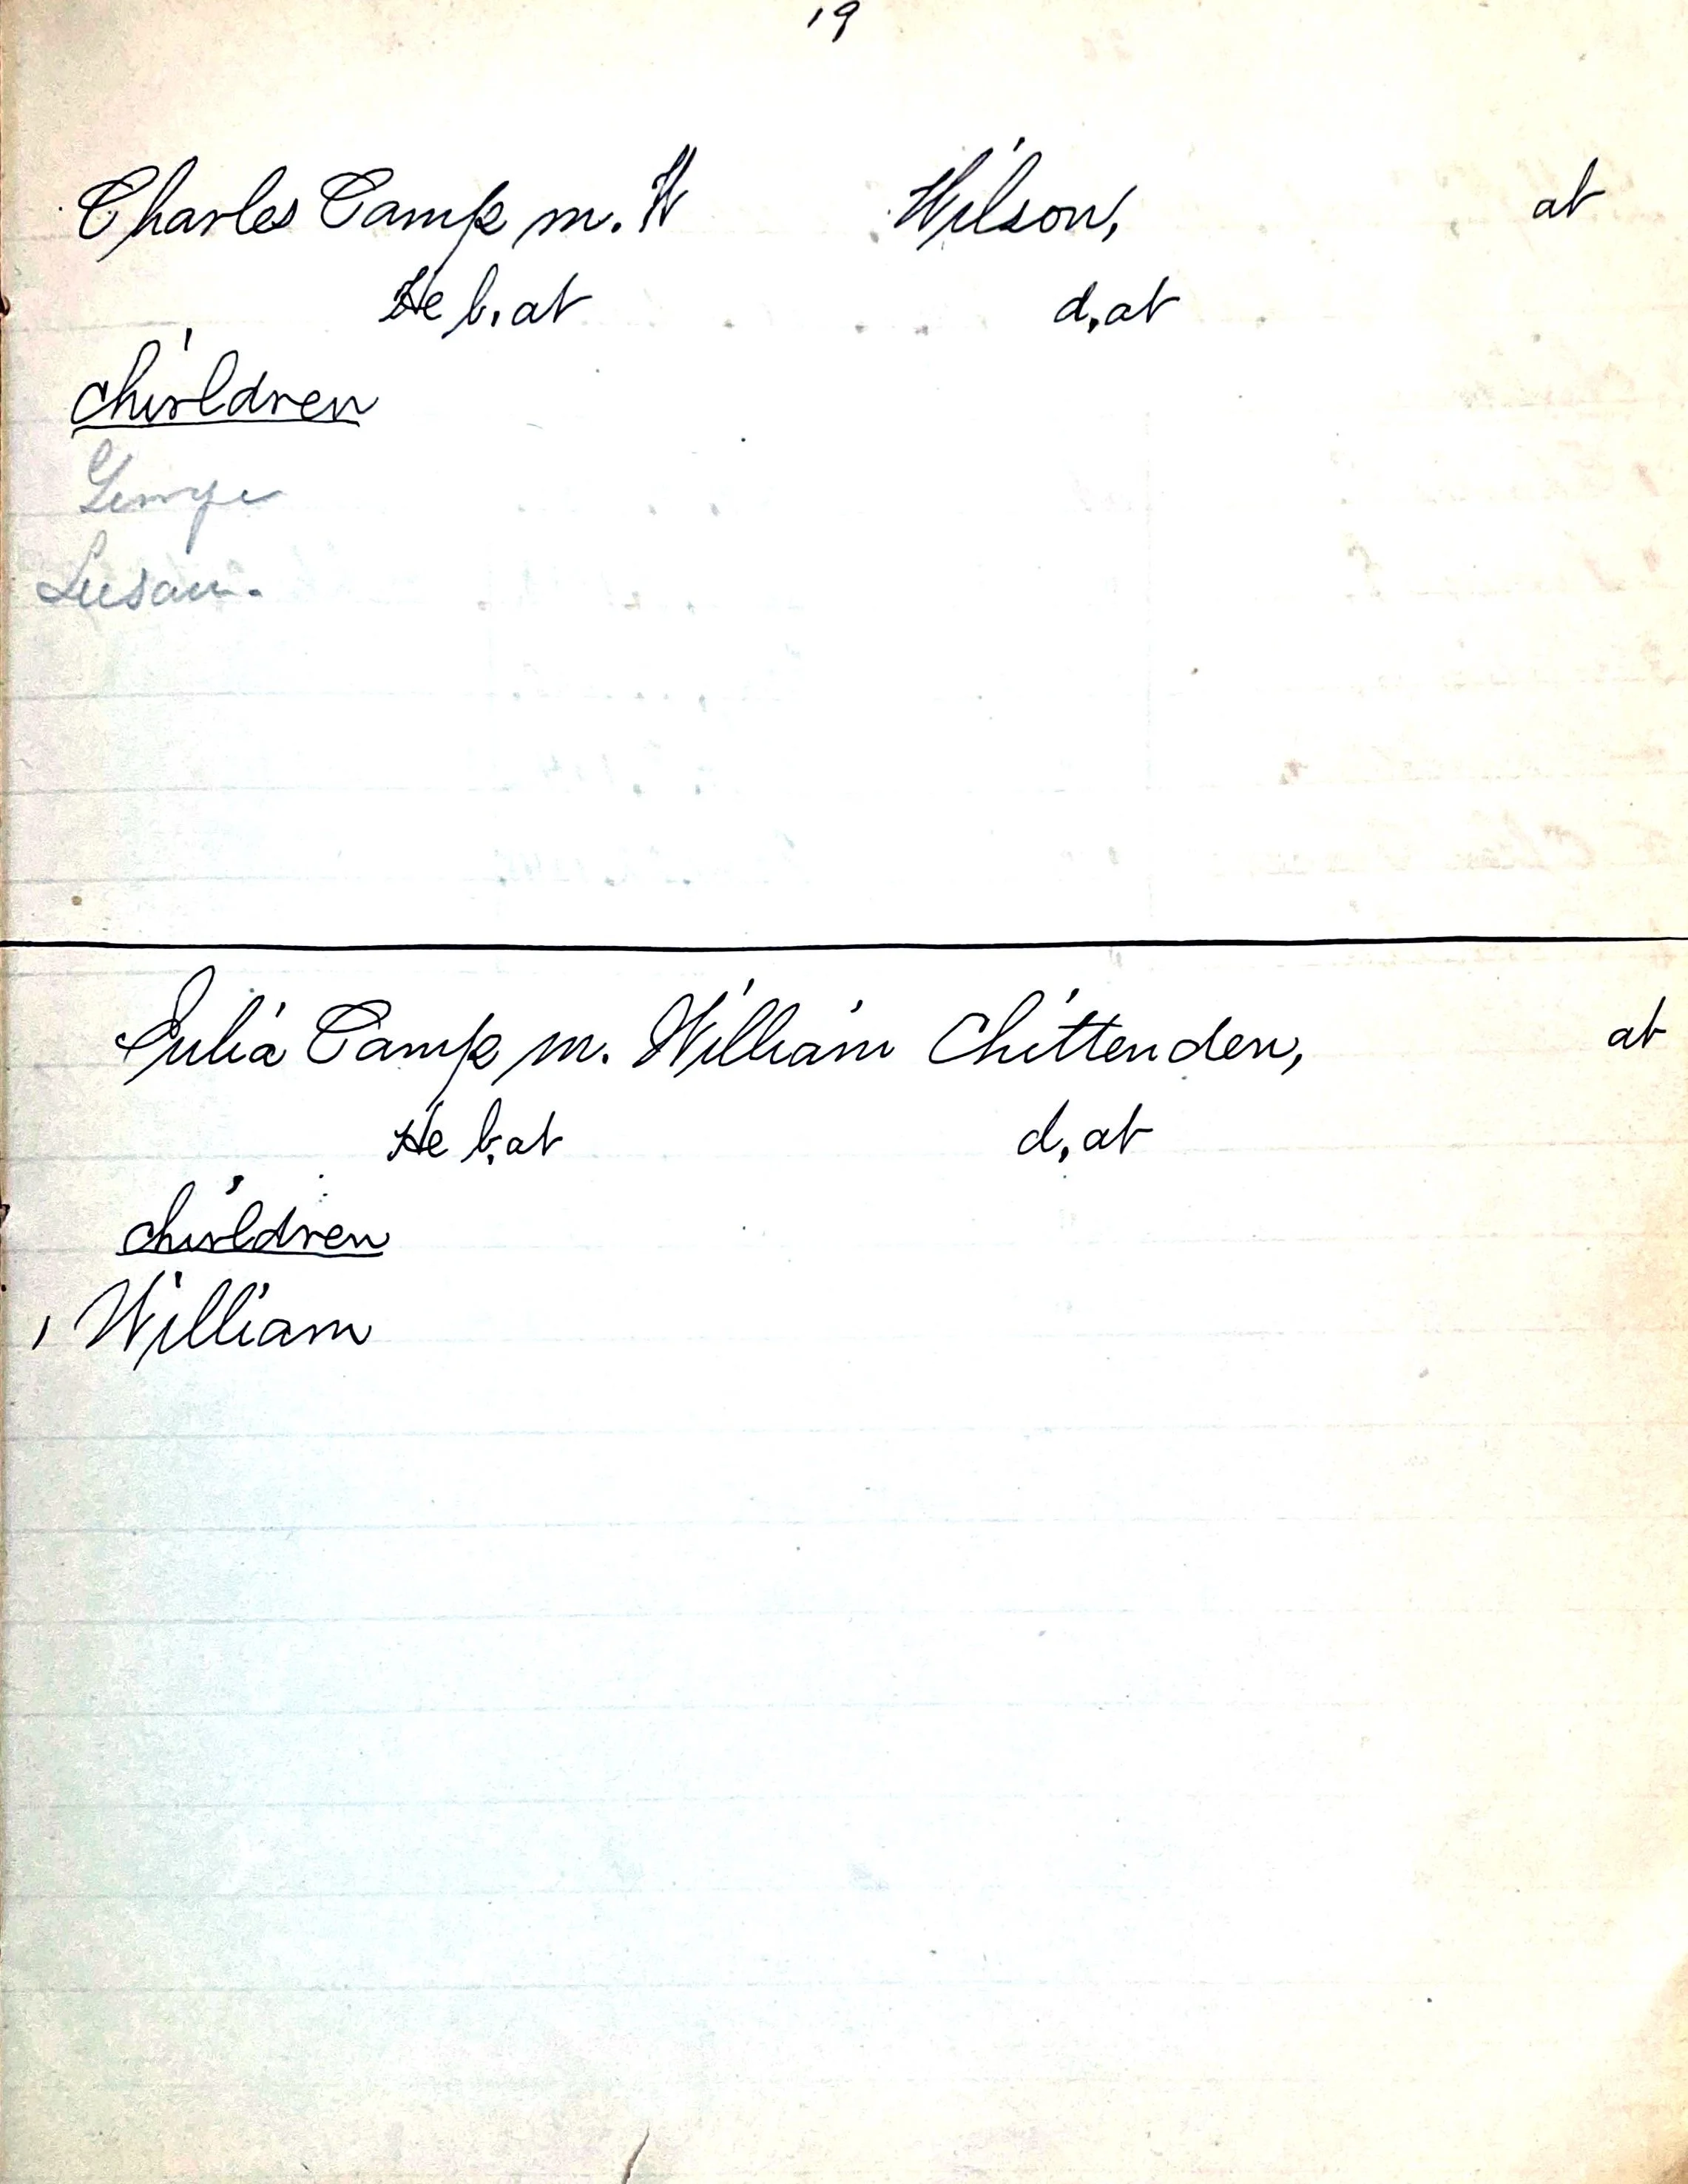 19
Charles Camp m. W Wilson, at
He b. at d, at
children
George
Susan.
Julia Camp m. William Chittenden, at
He b, at d, at
children
1 William